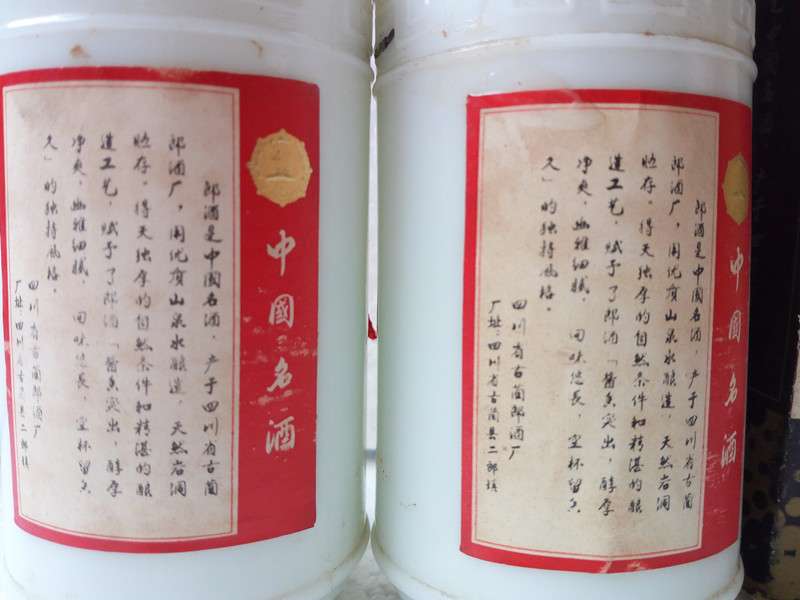 中國名酒
郎酒是中國名酒，产于四川省古蔺
郎酒厂，用优质山泉水酿造，天然岩洞
贮存。得天独厚的自然条件和精湛的酿
造工艺，赋予了郎酒「醬香突出，醇厚
净爽，幽雅细腻，回味悠長，空杯留香
久」的独特风格。
四川省古蔺郎酒厂
厂址：四川省古蔺县二郎镇
中國名酒
郎酒是中國名酒，产于四川省古蔺
郎酒厂，用优质山泉水酿造，天然岩洞
贮存。得天独厚的自然条件和精湛的酿
造工艺，赋予了郎酒「醬香突出，醇厚
净爽，幽雅细腻，回味悠長，空杯留香
久」的独特风格。
四川省古蔺郎酒厂
厂址：四川省古蔺县二郎镇